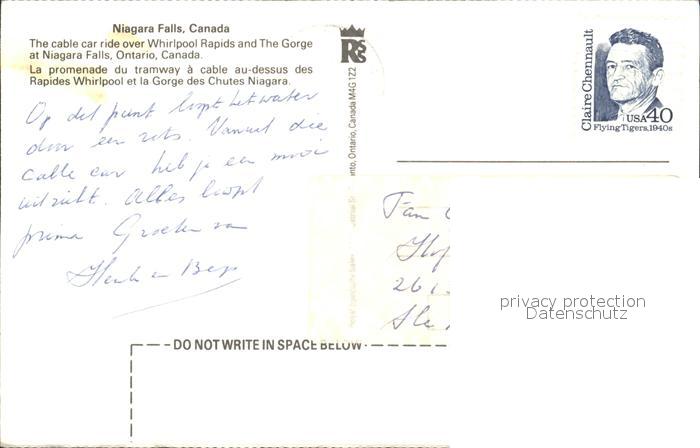 Niagara Falls, Canada
The cable car ride over Whirlpool Rapids and The Gorge
at Niagara Falls, Ontario, Canada.
La promenade du tramway à cable au-dessus des
Rapides Whirlpool et la Gorge des Chutes Niagara.
Op dit punt loopt het water
door een rots. Vanuit die
cable car heb je een mooi
uitzicht. Alles loopt
prima Groeten van
Henk en Beps
Ontario, Canada M4G 1Z2
Claire Chennault
USA 40
Flying Tigers, 1940s
Fam
Hof
261
Sle
privacy protection
Datenschutz
DO NOT WRITE IN SPACE BELOW